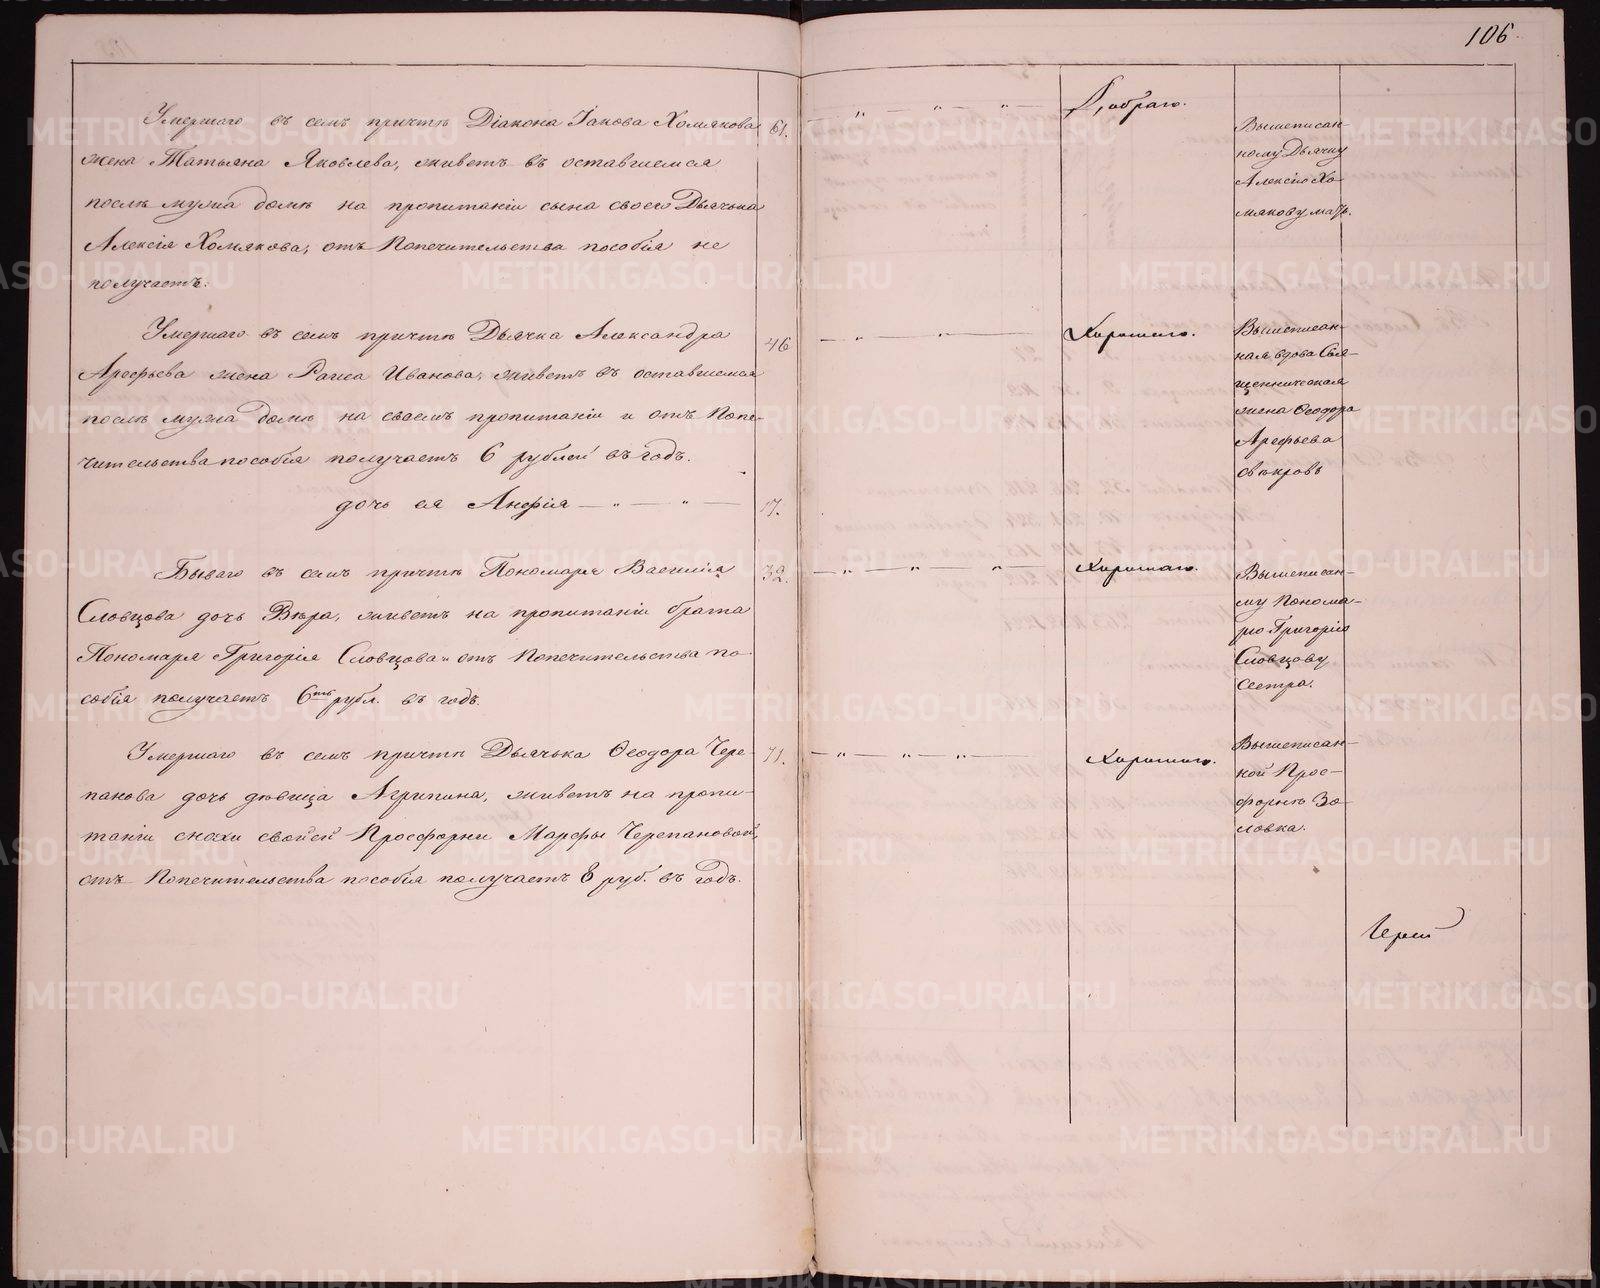 106
Умершаго въ семъ причтѣ Діакона Іакова Хомякова 61. — „ — „ — „ — Добраго.
жена Татьяна Яковлева, живетъ въ оставшемся
послѣ мужа домѣ на пропитаніи сына своего Дьячька
Алексія Хомякова, отъ Попечительства пособія не
получаетъ.
Вышеписан-
ному Дьячку
Алексію Хо-
мякову мать.
Умершаго въ семъ причтѣ Дьячка Александра 46 — „ — „ — Хорошаго.
Арефьева жена Раиса Иванова, живетъ въ оставшемся
послѣ мужа домѣ на своемъ пропитаніи и отъ Попе-
чительства пособія получаетъ 6 рублей въ годъ.
дочь ея Анфія — „ — „ — 17.
Вышеписан-
ная вдова Свя-
щенническая
жена Ѳеодора
Арефьева
свекровь
Бываго въ семъ причтѣ Пономаря Василія 32. — „ — „ — „ — Хорошаго.
Словцова дочь Вѣра, живетъ на пропитаніи брата
Пономаря Григорія Словцова и отъ Попечительства по-
собія получаетъ 6ть рубл. въ годъ.
Вышеписан-
му Понома-
рю Григорію
Словцову
Сестра.
Умершаго въ семъ причтѣ Дьячька Ѳеодора Чере- 71. — „ — „ — „ — Хорошаго.
панова дочь дѣвица Агрипина, живетъ на пропи-
таніи снохи своей Просфорни Марфы Черепановой,
отъ Попечительства пособія получаетъ 8 руб. въ годъ.
Вышеписан-
ной Прос-
форнѣ Зо-
ловка.
Іерей
METRIKI.GASO-URAL.RU